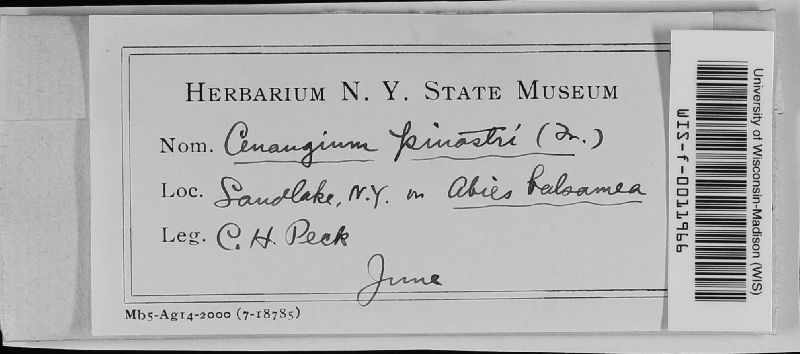 HERBARIUM N. Y. STATE MUSEUM
Nom. Cenangium pinastri (Fr.)
Loc. Sandlake, N.Y. on Abies balsamea
Leg. C. H. Peck
June
Mb5-Ag14-2000 (7-18785)
University of Wisconsin-Madison (WIS)
WIS-f-0011966